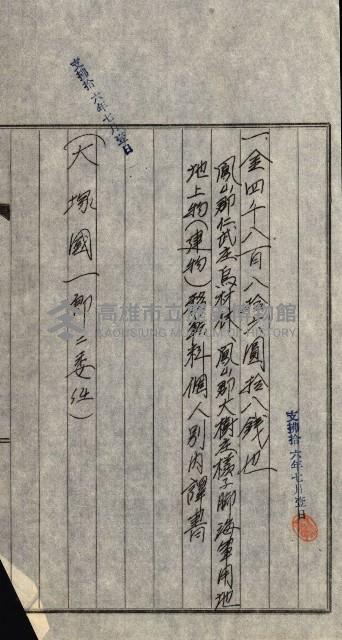 支拂拾六年七月壹日
一金四千八百八拾圓拾八錢也
支拂拾六年七月壹日
鳳山郡仁武庄烏材林、鳳山郡大樹庄檨子脚海軍用地
地上物(建物)移轉料個人別內譯書
(大塚國一郎ニ委任)
高雄市立歷史博物館
KAOHSIUNG MUSEUM OF HISTORY